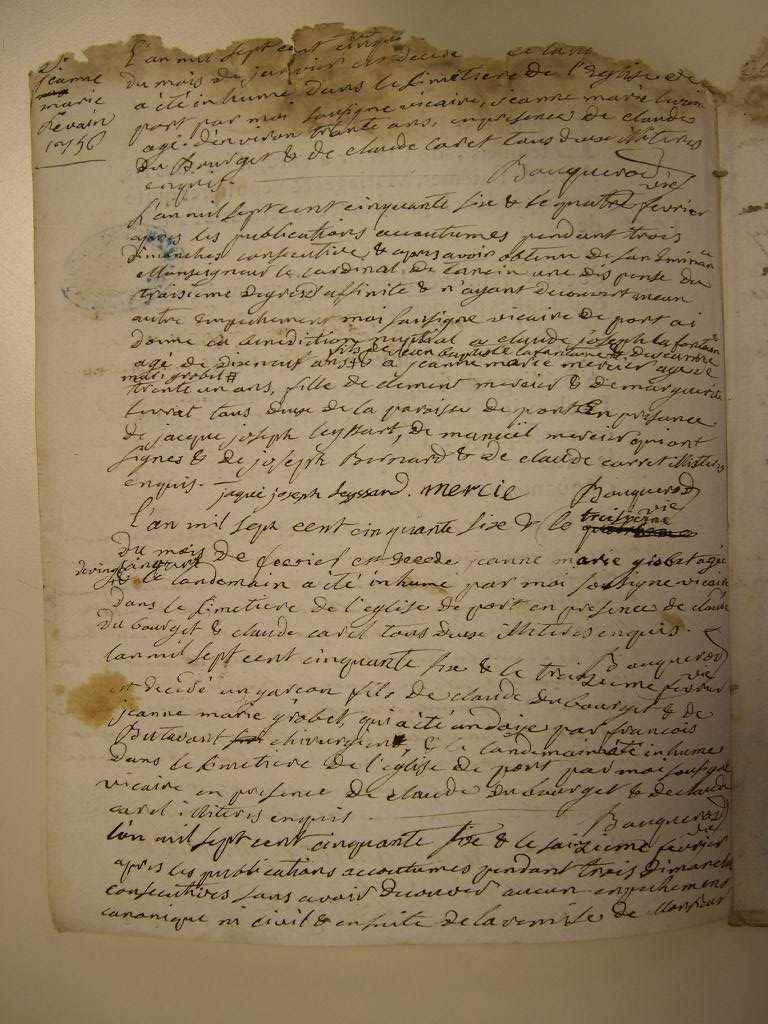 jeanne
marie
Levain
1756
L'an mil sept cent cinqua
Du mois de janvier est decede
a été inhumé dans le simetiere de l'Eglise de
port par moi sousigne vicaire, jeanne marie
agé d'environ trante ans, en presence de claude
Du Bourget & de claude caret tous deux illiteres
enquis. Bouquerod
vic
L'an mil sept cent cinquante six & le quatre fevrier
apres les publications accoutumes pendant trois
dimanches consecutive, & apres avoir obtenu de son Eminance
Monseigneur le cardinal de une dispense du
troisieme degres d'affinite & n'ayant decouvert aucun
autre empechement moi sousigne vicaire de port ai
donne la benediction nuptial a claude joseph la fontaine
fils de jean baptiste la fontaine & de jeanne
mari grobet #
agé de dixneuf ans # & a jeanne marie mercier agee de
trente un ans, fille de clement mercier & de marguerite
tous deux de la paroise de port En presence
de jacque joseph leyssart, de manuël mercier qui ont
signes & de joseph Bernard & de claude carret illiteres
enquis. jaque joseph Seyssard. mercie Bouquerod
vic
l'an mil seph cent cinquante sixe & le treisieme
Du mois de fevrier est decede jeanne marie grobet agée
de vingt cinq ans
& le landemain a été inhumé par moi sousigne vicaire
Dans le simetiere de l'eglise de port en presence de claude
Du bourget & claude caret tous deux illiteres enquis.
Bouquerod
vic
lan mil sept cent cinquante sixe & le treisieme fevrier
est decédé un garcon fils de claude du bourget & de
jeanne marie grobet, qui a été andoyé par francois
chirurgien, & le landemain a été inhumé
Dans le simetiere de l'eglise de port par moi sousigne
vicaire en presence de claude du bourget & de claude
caret illiteres enquis. Bouquerod
vic
l'an mil sept cent cinquante sixe & le saizieme fevrier
apres les publications accoutumes pendant trois dimanche
consecutives sans avoir decouver aucun enpechement
canonique ni civil & ensuite de la remise de Monsieur